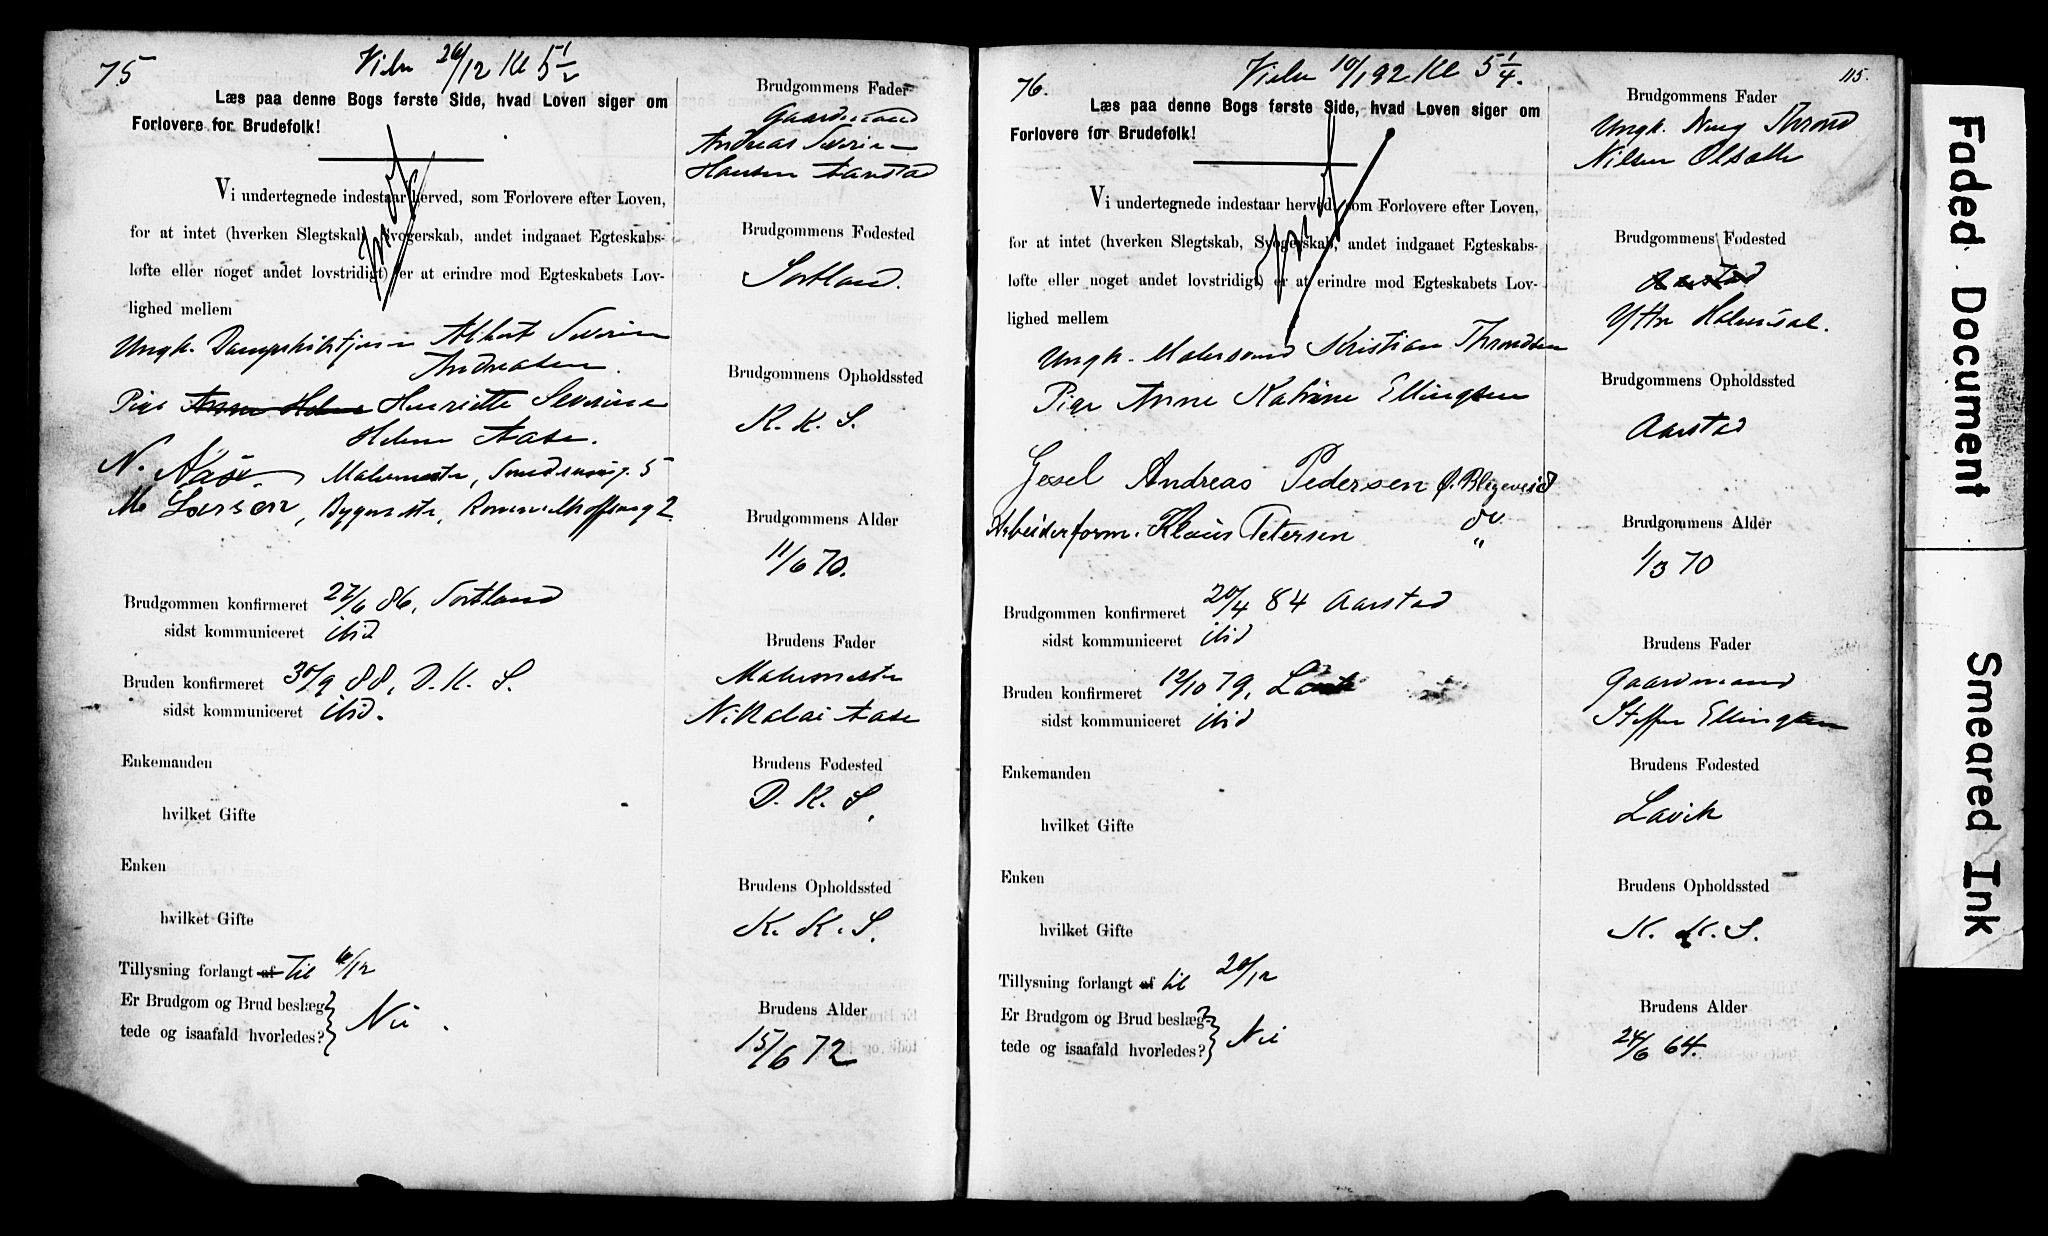 75
Vielse 26/12 Kl 5 1/2
Læs paa denne Bogs første Side, hvad Loven siger om
Forlovere for Brudefolk!
Vi undertegnede indestaar herved, som Forlovere efter Loven,
for at intet (hverken Slegtskab, Svogerskab, andet indgaaet Egteskabs-
løfte eller noget andet lovstridigt) er at erindre mod Egteskabets Lov-
lighed mellem
Ungk. Albert Severin
Andreasen.
Pige Anne Helene Henriette Severine
Helene Aase.
N. Aase. Malermester, 5
M. Larsen, Bygmester, 2
Brudgommen konfirmeret 27/6 86, Sortland
sidst kommuniceret ibid
Bruden konfirmeret 30/9 88, D. K. S.
sidst kommuniceret ibid.
Enkemanden
hvilket Gifte
Enken
hvilket Gifte
Tillysning forlangt af til 6/12
Er Brudgom og Brud beslæg-
tede og isaafald hvorledes? Nei.
Brudgommens Fader
Gaardmand
Andreas Severin
Hansen Aanstad
Brudgommens Fødested
Sortland.
Brudgommens Opholdssted
K. K. S.
Brudgommens Alder
11/6 70.
Brudens Fader
Malermester
Nikolai Aase
Brudens Fødested
D. K. S.
Brudens Opholdssted
K. K. S.
Brudens Alder
15/6 72
76.
Vielse 10/1 92 Kl 5 1/4.
115.
Læs paa denne Bogs første Side, hvad Loven siger om
Forlovere for Brudefolk!
Vi undertegnede indestaar herved, som Forlovere efter Loven,
for at intet (hverken Slegtskab, Svogerskab, andet indgaaet Egteskabs-
løfte eller noget andet lovstridigt) er at erindre mod Egteskabets Lov-
lighed mellem
Ungk. Malersvend Kristian Throndsen
Pige Anne Katrine Ellingsen
Gesel Andreas Pedersen Ø. Blegeveid
Arbeiderform. Klaus Petersen do
Brudgommen konfirmeret 20/4 84 Aarstad
sidst kommuniceret ibid
Bruden konfirmeret 12/10 79,
sidst kommuniceret ibid
Enkemanden
hvilket Gifte
Enken
hvilket Gifte
Tillysning forlangt af til 20/12
Er Brudgom og Brud beslæg-
tede og isaafald hvorledes? Nei
Brudgommens Fader
Ungk. Thrond
Nilsen
Brudgommens Fødested
Aarstad
Ytre
Brudgommens Opholdssted
Aarstad
Brudgommens Alder
1/3 70
Brudens Fader
Gaardmand
Steffen Ellingsen
Brudens Fødested
Lavik
Brudens Opholdssted
K. K. S.
Brudens Alder
24/6 64.
Faded Document
Smeared Ink